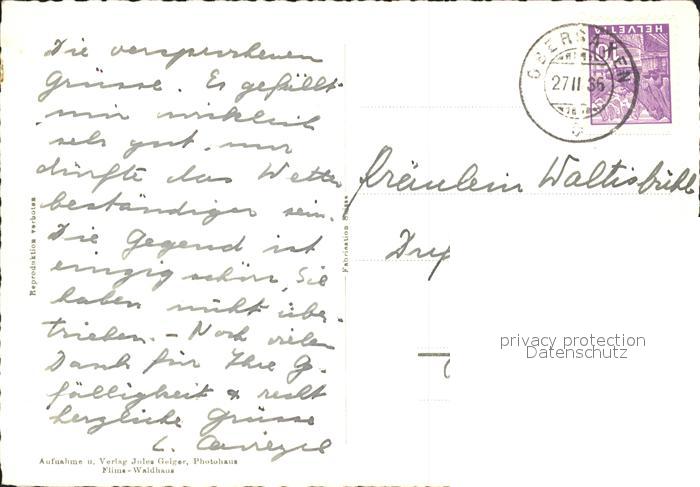 Die versprochenen
Grüsse. Es gefällt
mir wirklich
sehr gut, nur
dürfte das Wetter
beständiger sein.
Die Gegend ist
einzig schön, Sie
haben nicht über-
trieben. – Noch vielen
Dank für Ihre G.
fälligkeit & recht
herzliche Grüsse
Reproduktion verboten
Aufnahme u. Verlag Jules Geiger, Photohaus
Flims-Waldhaus
Fabrication Suisse
HELVETIA
27 II 36
Fräulein Waltisbühl
privacy protection
Datenschutz